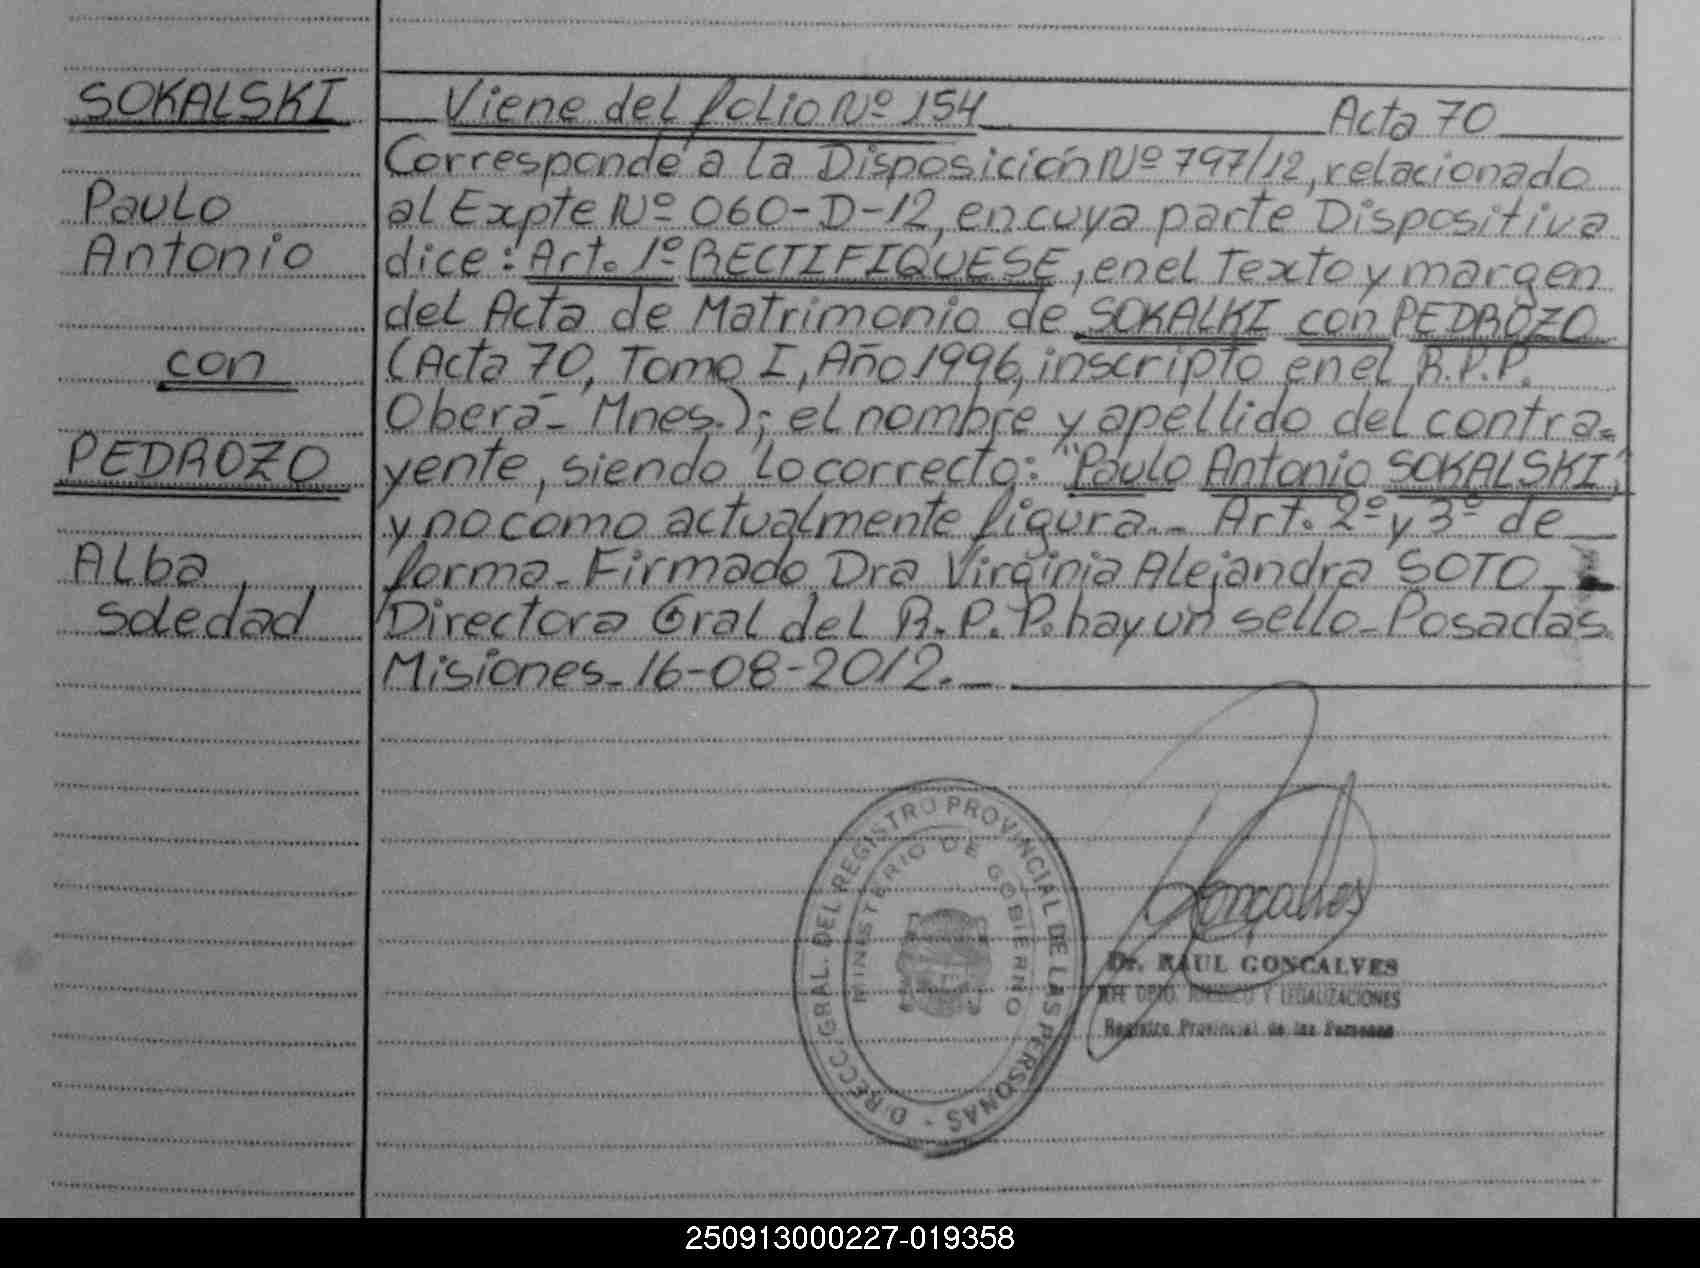 SOKALSKI
Paulo
Antonio
con
PEDROZO
Alba
Soledad
Viene del folio Nº 154 Acta 70
Corresponde a la Disposición Nº 797/12, relacionado
al Expte Nº 060-D-12, en cuya parte Dispositiva
dice: Art. 1º RECTIFIQUESE, en el Texto y margen
del Acta de Matrimonio de SOKALKI con PEDROZO
(Acta 70, Tomo I, Año 1996, inscripto en el R.P.P.
Oberá- Mnes.); el nombre y apellido del contra-
yente, siendo lo correcto: "Paulo Antonio SOKALSKI",
y no como actualmente figura.- Art. 2º y 3º de
forma- Firmado Dra Virginia Alejandra SOTO
Directora Gral del R.P.P. hay un sello- Posadas
Misiones- 16-08-2012.-
DIRECC. GRAL. DEL REGISTRO PROVINCIAL DE LAS PERSONAS -
MINISTERIO DE GOBIERNO
Gonçalves
Dr. RAUL GONCALVES
JEFE DPTO. JURIDICO Y LEGALIZACIONES
Registro Provincial de las Personas
250913000227-019358